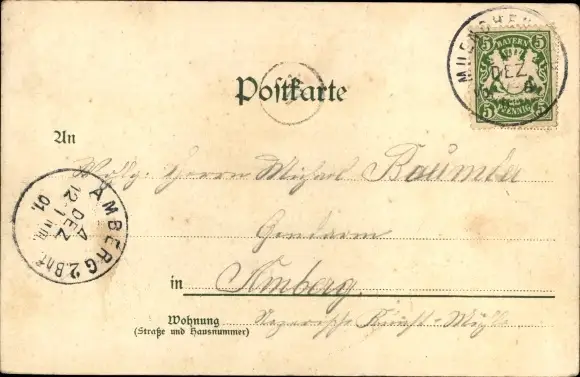 MUENCHEN
BAYERN
5 5
DEZ.
5 5
PFENNIG
Postkarte
An
Herrn Michael Baumber
AMBERG 2. Bhf.
4 DEZ
12-1 NM.
01.
Gendarm
in Amberg.
Wohnung
(Straße und Hausnummer)